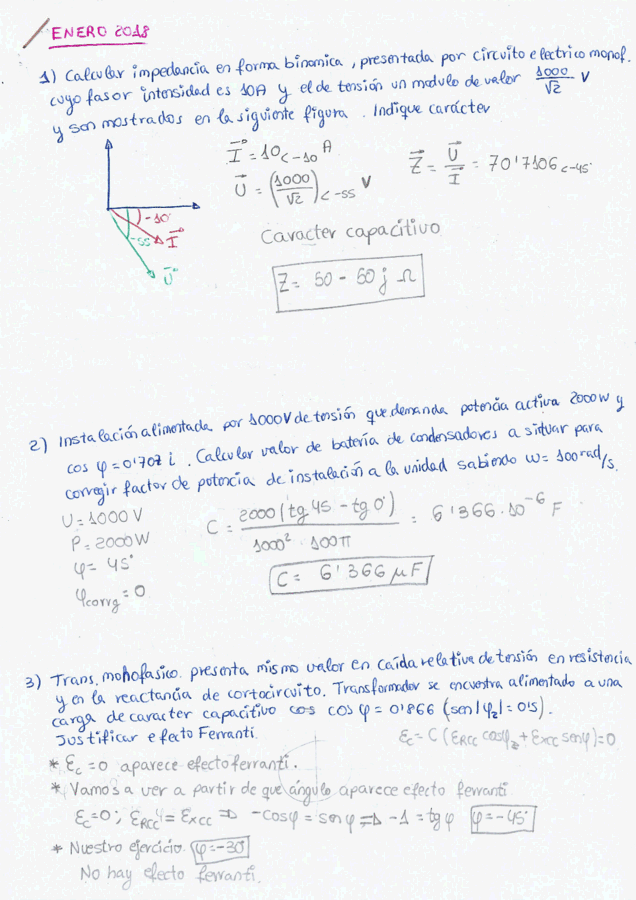 ENERO 2018
1) Calcular impedancia en forma binomica, presentada por circuito electrico monof.
cuyo fasor intensidad es 10A y el de tensión un modulo de valor 1000/√2 V
y son mostrados en la siguiente figura. Indique carácter
I = 10<-10 A
U = (1000/√2)<-55 V
Z = U/I = 70'7106<-45°
-10°
-55
I
U
Caracter capacitivo
Z = 50 - 50j Ω
2) Instalación alimentada por 1000V de tensión que demanda potencia activa 2000W y
cos φ = 0'707 i. Calcular valor de batería de condensadores a situar para
corregir factor de potencia de instalación a la unidad sabiendo ω = 100rad/s.
U = 1000 V
P = 2000W
φ = 45°
φcorrg = 0
C = 2000(tg 45 - tg 0°) / 1000² · 100π = 6'366·10⁻⁶ F
C = 6'366 μF
3) Trans. mohofasico presenta mismo valor en caída relativa de tensión en resistencia
y en la reactancia de cortocircuito. Transformador se encuentra alimentado a una
carga de caracter capacitivo cos cos φ = 0'866 (sen|φ₂| = 0'5).
Justificar efecto Ferranti.
Ec = C(ERcc cosφ₂ + Excc senφ) = 0
* Ec = 0 aparece efecto ferranti.
* Vamos a ver a partir de que ángulo aparece efecto ferranti
Ec = 0; ERcc = Excc ⇒ -cosφ = senφ ⇒ -1 = tgφ φ = -45°
* Nuestro ejercicio φ = -30°
No hay efecto ferranti.